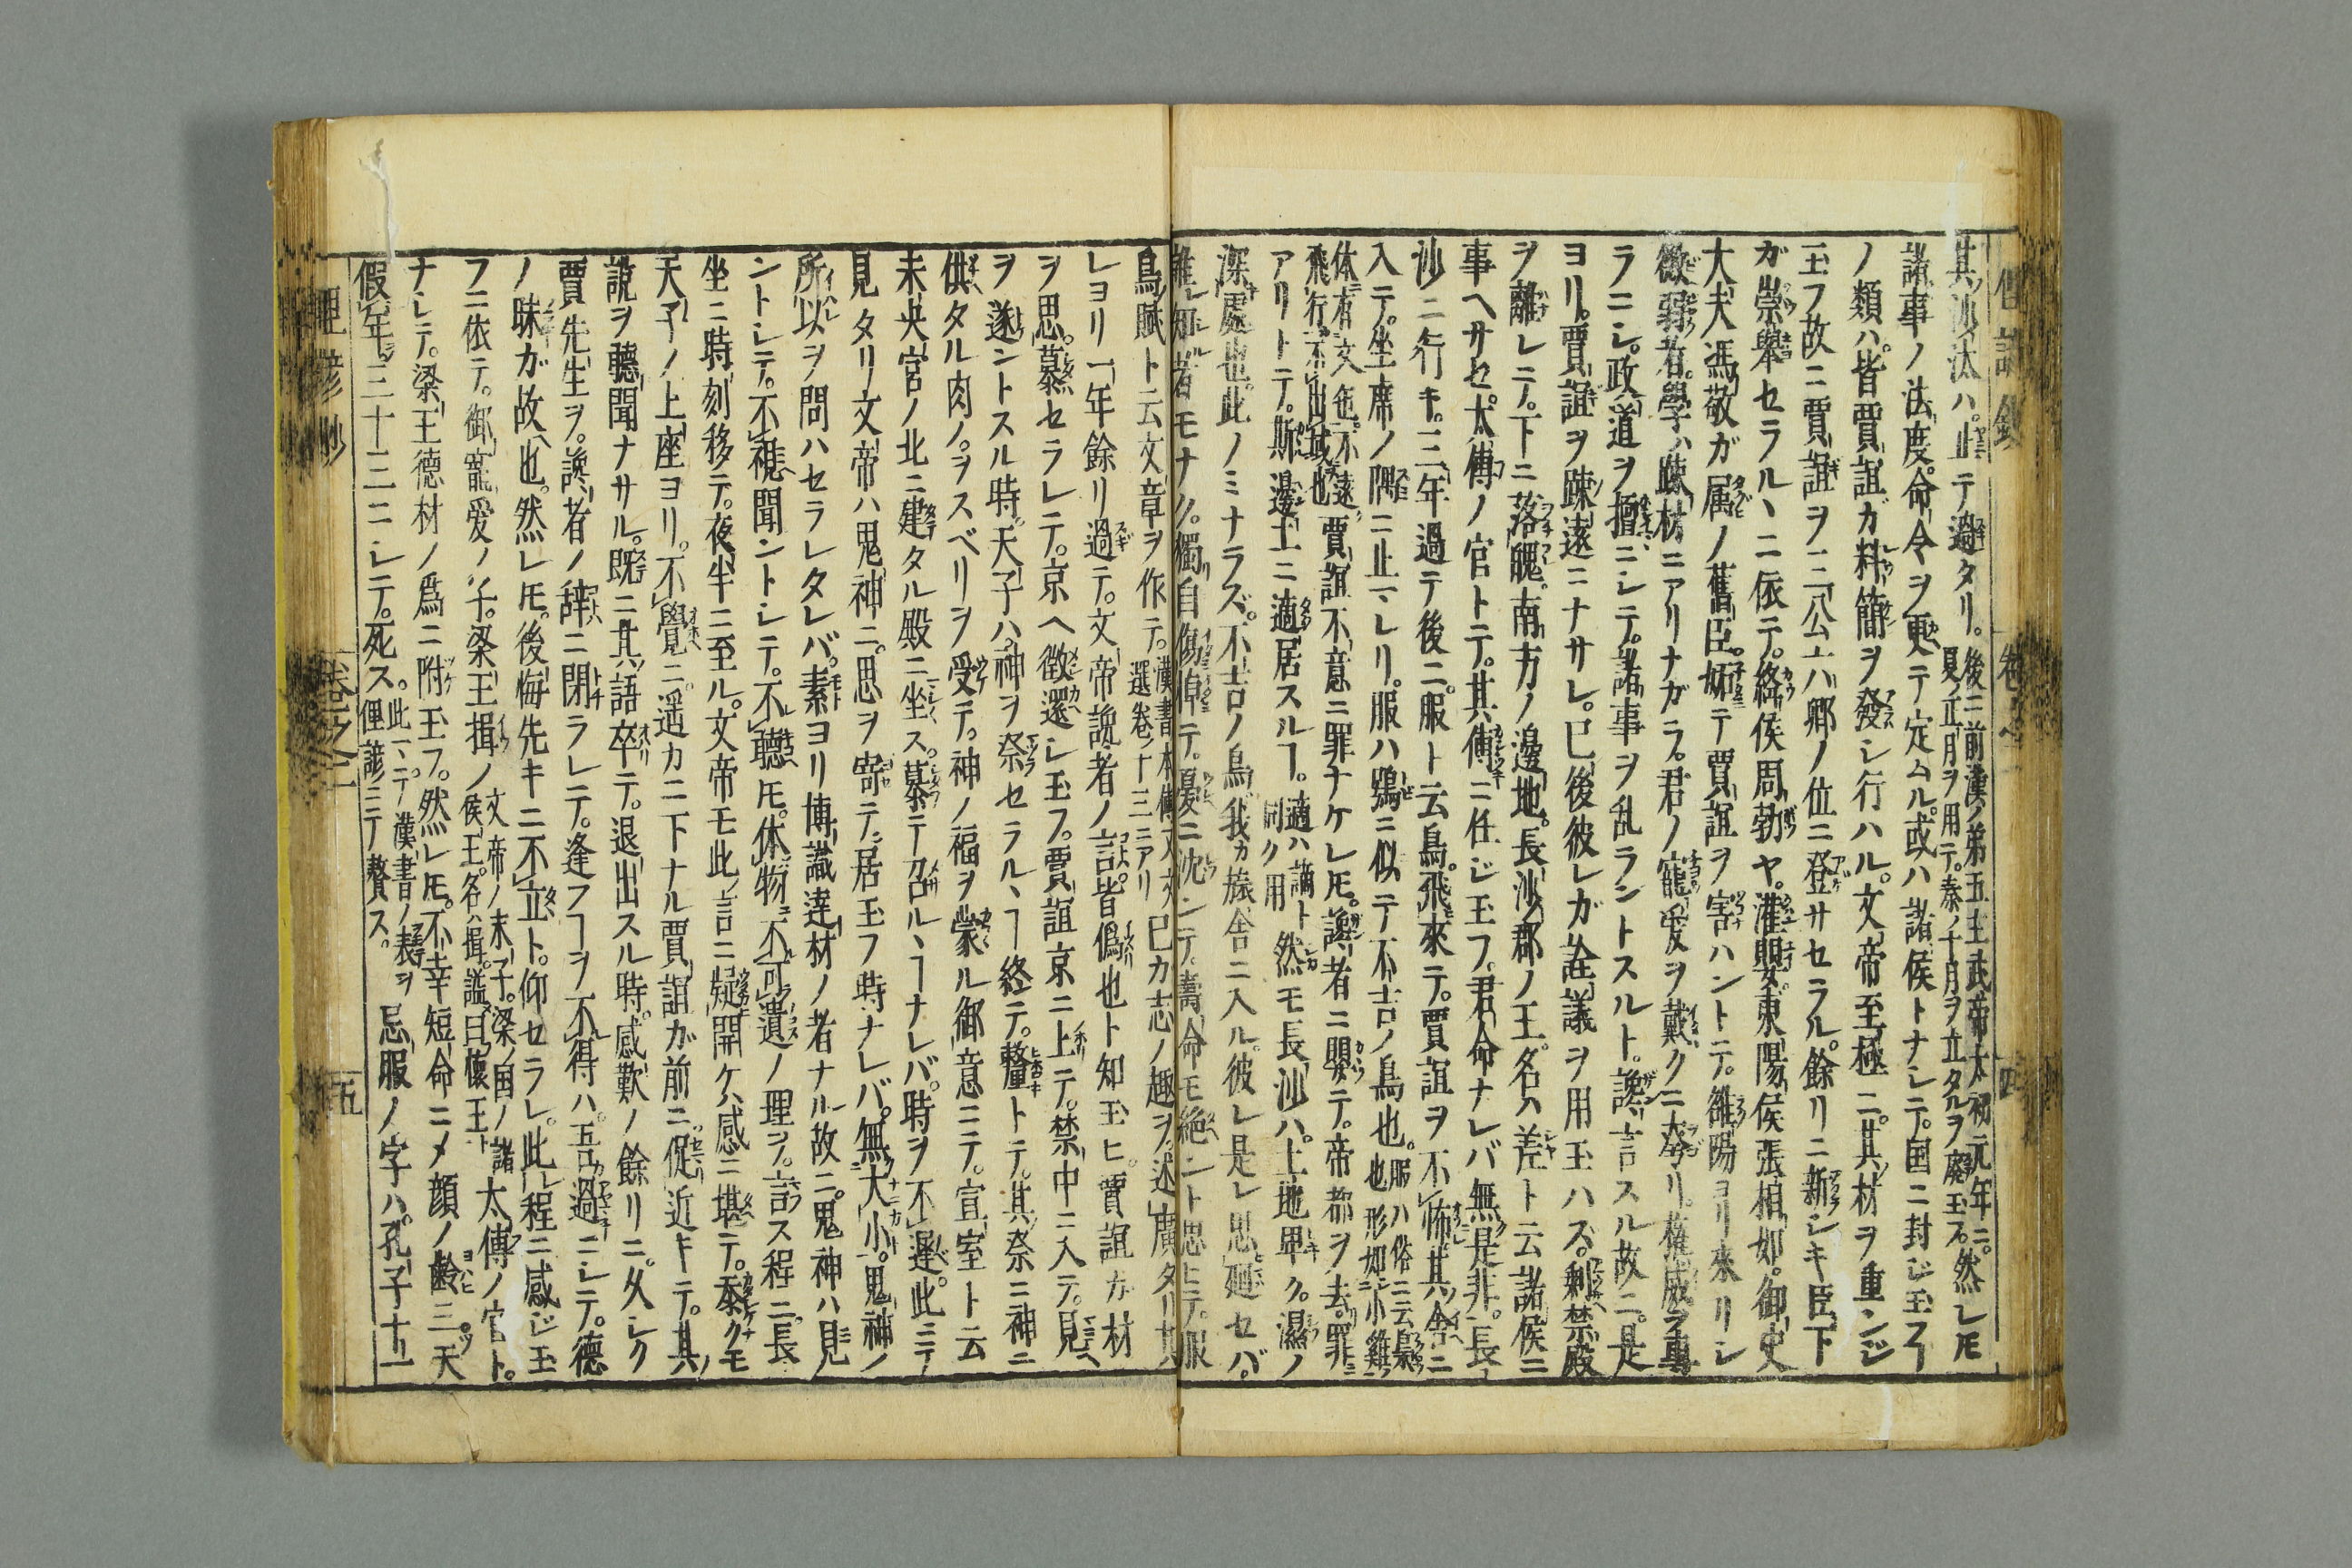 其沙汰ハ。止テ過タリ。後ニ前漢ノ第五主武帝太初元年ニ。夏ノ正月ヲ用テ。秦ノ十月ヲ立タルヲ廢玉フ。然レモ
諸事ノ法度。命令ヲ更テ定ムル。或ハ諸侯トナシテ。国ニ封ジ玉フヿ
ノ類ハ。皆賈誼ガ料簡ヲ發シ行ハル。文帝至極ニ。其材ヲ重ンジ
玉フ故ニ賈誼ヲ三公六卿ノ位ニ登サセラル。餘リニ新シキ臣下
ガ崇擧セラルヽニ依テ。絳侯周勃ヤ。灌嬰東陽侯張相如。御史
大夫馮敬ガ属ノ舊臣。妬テ賈誼ヲ害ハントテ。雒陽ヨリ來リシ
微弱者。學ハ疎材ニアリナガラ。君ノ寵愛ヲ戴クニ奢リ。權威ヲ專
ラニシ。政道ヲ擅ニシテ。諸事ヲ乱ラントスルト。讒言スル故ニ。是
ヨリ。賈誼ヲ疎遠ニナサレ。已後彼レガ詮議ヲ用玉ハズ。剰禁殿
ヲ離レニテ。下ニ落魄。南方ノ邊地。長沙郡ノ王。名ハ差ト云諸侯ニ
事ヘサセ。太傅ノ官トテ。其傅ニ任ジ玉フ。君命ナレバ無是非。長
沙ニ行キ。三年過テ後ニ。服ト云鳥。飛來テ。賈誼ヲ不怖其舎ニ
入テ。坐席ノ隅ニ止マレリ。服ハ鴞ニ似テ不吉ノ鳥也。服ハ俗ニ云梟也形如小雞
体有文色。不遠飛行不出域也賈誼不意ニ罪ナケレモ。讒者ニ嬰テ。帝都ヲ去。罪
アリトテ。斯邊土ニ適居スルヿ。適ハ謫ト同ク用然モ長沙ハ。土地卑ク。濕ノ
深處也。此ノミナラズ。不吉ノ鳥我カ旅舎ニ入ル。彼レ是レ思廻セバ。
誰レ知者モナク。獨自傷悼テ。憂ニ沈ンデ。壽命モ絶ント思ヒテ。服
鳥賦ト云文章ヲ作テ。漢書本傳又文選卷ノ十三ニアリ已カ志ノ趣ヲ。述廣タリ其
レヨリ一年餘リ過テ。文帝讒者ノ言皆僞也ト知玉ヒ。賈誼カ材
ヲ思。慕セラレテ。京ヘ徴還シ玉フ。賈誼京ニ上テ。禁中ニ入テ。見
ヲ遂ントスル時。天子ハ。神ヲ祭セラルヽヿ終テ。釐トテ。其祭ニ神ニ
供タル肉ノ。ヲスベリヲ受テ。神ノ福ヲ蒙ル御意ニテ。宣室ト云
未央宮ノ北ニ建タル殿ニ坐ス。慕テ召ルヽヿナレバ。時ヲ不遅。此ニテ
見タリ文帝ハ鬼神ニ。思ヲ寄テ。居玉フ時ナレバ。無大小。鬼神ノ
所以ヲ問ハセラレタレバ。素ヨリ博識達材ノ者ナル故ニ。鬼神ハ見
ントシテ。不視聞ントシテ。不聽モ。体物不可遺ノ理ヲ。言ス程ニ。長
坐ニ時刻移テ。夜半ニ至ル。文帝モ此言ニ疑開ケ。感ニ堪テ。忝クモ
天子ノ上座ヨリ。不覺ニ。遥カニ下ナル賈誼が前ニ。促近キテ。其
説ヲ聽聞ナサル。既ニ其語卒テ。退出スル時。感歎ノ餘リニ。久シク
賈先生ヲ。讒者ノ辞ニ閉ラレテ。逢フヿヲ不得ハ。吾過ニシテ。德
ノ昧ガ故也。然レモ。後悔先キニ不立ト。仰セラレ。此程ニ感ジ玉
フニ依テ。御寵愛ノ子。梁王揖ノ文帝ノ末子。梁ノ国ノ諸侯王。名ハ揖。謚曰懷王ト太傅ノ官ト。
ナシテ。梁王德材ノ爲ニ附玉フ。然レモ。不幸短命ニメ顔ノ齢三ツ。天
假年三十三ニシテ。死ス。此マテ漢書ノ表ヲ俚諺ニテ贅ス。忌服ノ字ハ。孔子十一
俚諺鈔
卷之一
四
俚諺鈔
卷之一
五